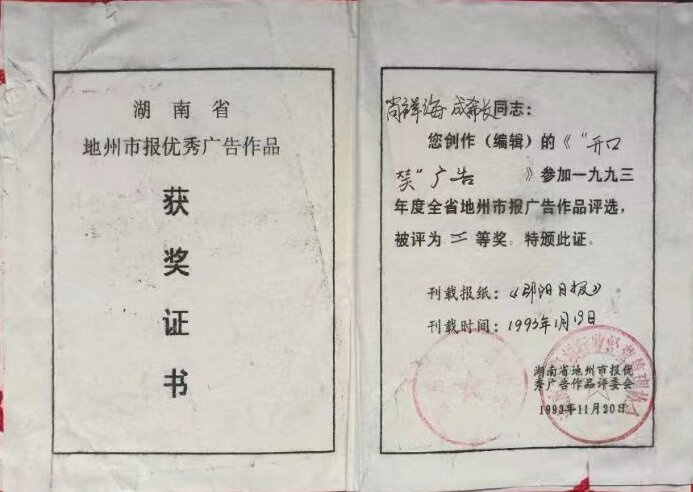 湖南省
地州市报优秀广告作品
获奖证书
肖祥海 成希长同志：
您创作（编辑）的《“开口
笑”广告 》参加一九九三
年度全省地州市报广告作品评选，
被评为三等奖。特颁此证。
刊载报纸：《邵阳日报》
刊载时间：1993年1月19日
湖南省地州市报优
秀广告作品评委会
1993年11月20日